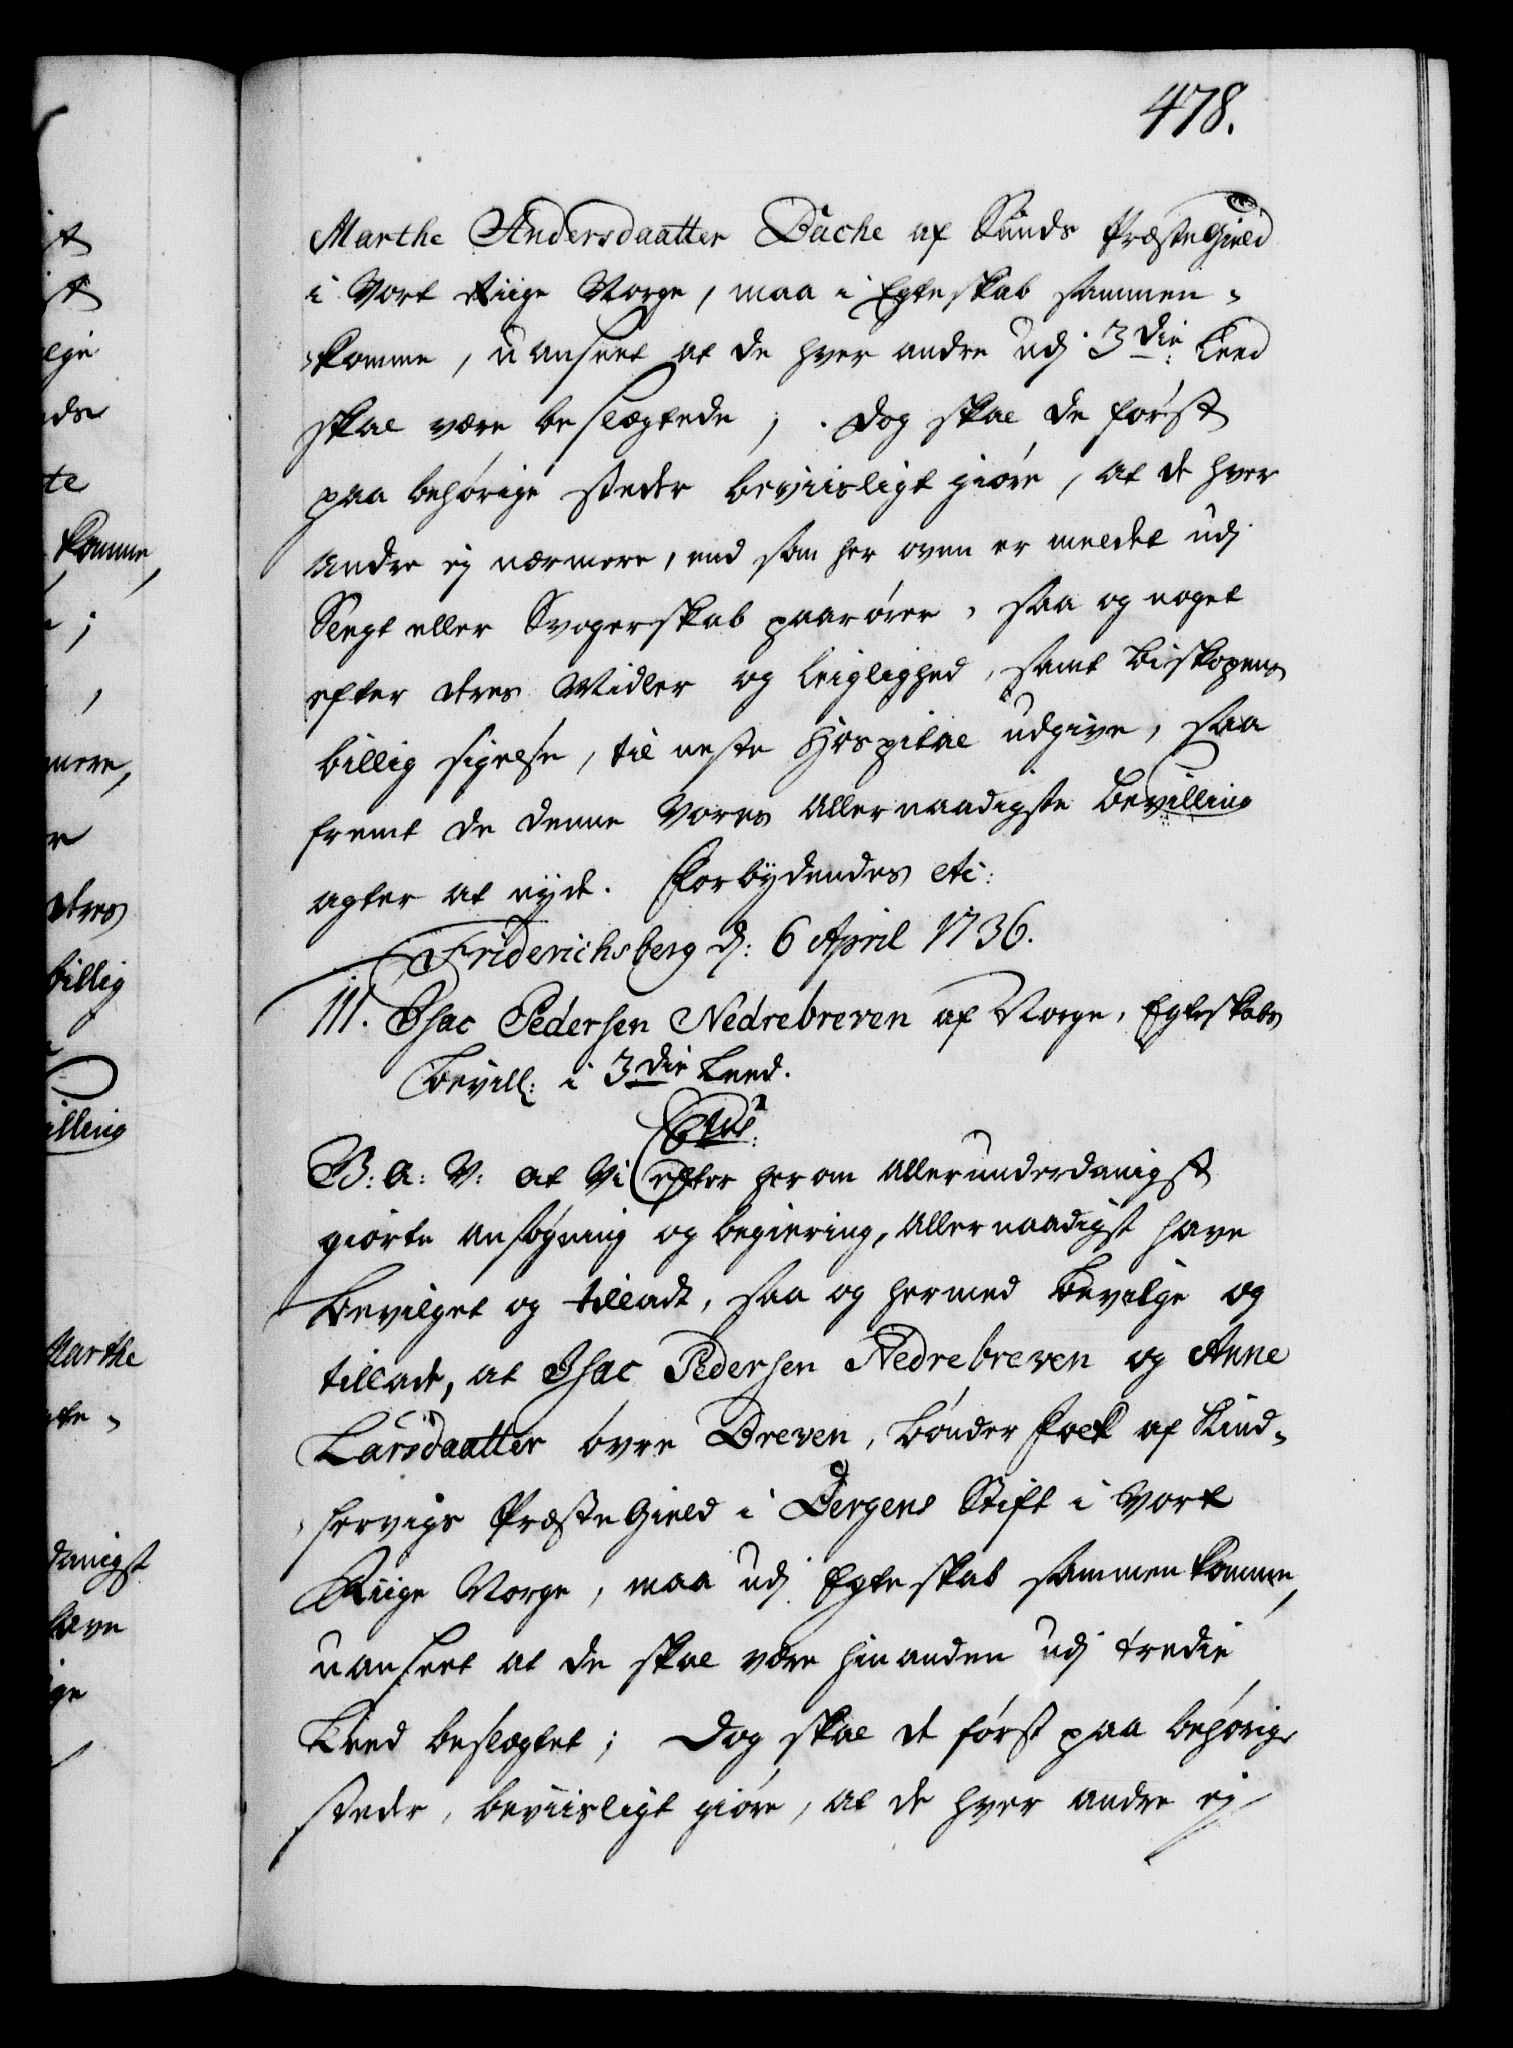 478.
Marthe Andersdaatter Bache af Sunds Præste Gield
i Vort Riige Norge, maa i Egteskab sammen-
komme, uanseet at de hver andre udj 3die: Leed
skal være beslægtede; Dog skal de først
paa behørige steder beviisligt giøre, at de hver
andre ej nærmere, end som her oven er meldet udj
Slegt eller Svogerskab paarører, saa og noget
efter deres Midler og Leylighed, samt Biskopens
billig sigelse, til neste Hospital udgive, saa
fremt de denne Vores Allernaadigste Bevilling
agter at nyde. Forbydendes etc:
Friderichsberg d: 6 April 1736.
111. Isac Pedersen Nedrebreven af Norge, Egteskabs
Bevill: i 3die Leed.
B: A: V: at Vi efter herom allerunderdanigst
giorte ansøgning og begiering, Allernaadigst have
bevilget og tilladt, saa og hermed bevilge og
tillade, at Isac Pedersen Nedrebreven og Anne
Larsdaatter øvre Breven, bønder Folk af Kind-
servigs Præste Gield i Bergens Stift i Vort
Riige Norge, maa udj Egteskab sammenkomme,
uanseet at de skal være hinanden udj tredie
Leed beslægtet; Dog skal de først paa behørige
steder, beviisligt giøre, at de hver andre ej

komme,
;
mere,
deres
billig
illing
Marthe
danigst
have